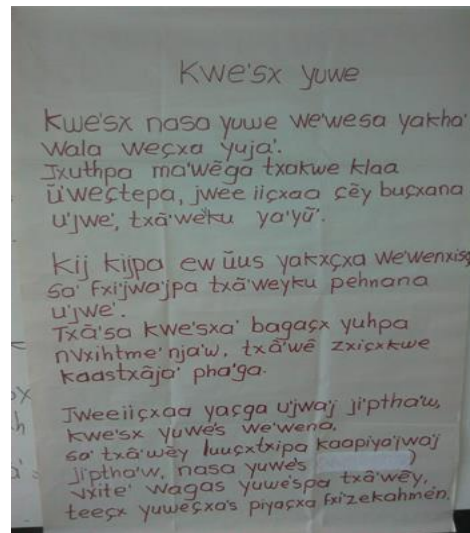 Kwe'sx yuwe
Kwe'sx nasa yuwe we'wesa yakha'
Wala weçxa yuja'.
Jxuthpa ma'wẽga txakwe klaa
ũ'weçtepa, jwee iiçxaa çẽy buçxana
u'jwe', txã'wẽku ya'yũ'.
Kij kijpa ew ũus yakxçxa we'wenxisa
sa' fxi'jwa'jpa txã'weyku pehnana
u'jwe'.
Txã'sa kwe'sxa' bagaçx yuhpa
nvxihtme' nja'w, txã'wẽ zxiçxkwe
kaastxãja' pha'ga.
Jweeiiçxaa yaçga u'jwa'j ji'ptha'w,
kwe'sx yuwe's we'wena,
sa' txã'wẽy luuçxtxipa kaapiya'jwa'j
ji'ptha'w, nasa yuwe's )
vxite' wagas yuwe'spa txã'wẽy,
teeçx yuweçxa's piyaçxa fxi'zekahmén.